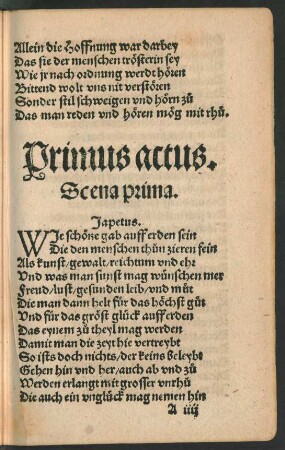 Allein die Hoffnung war darbey
Das sie der menschen trösterin sey
Wie jr nach ordnung werdt hören
Bittend wolt vns nit verstören
Sonder stil schweigen vnd hörn zů
Das man reden vnd hören mög mit rhů.
Primus actus.
Scena prima.
Japetus.
WJe schöne gab auff erden sein
Die den menschen thůn zieren fein
Als kunst/gewalt/reichtum vnd ehr
Vnd was man sunst mag wünschen mer
Freud/lust/gesunden leib/vnd můt
Die man dann helt für das höchst gůt
Vnd für das gröst glück auff erden
Das eynem zů theyl mag werden
Damit man die zeyt hie vertreybt
So ists doch nichts/der keins beleybt
Gehen hin vnd her/auch ab vnd zů
Werden erlangt mit grosser vnrhů
Die auch ein vnglück mag nemen hin
A iiij